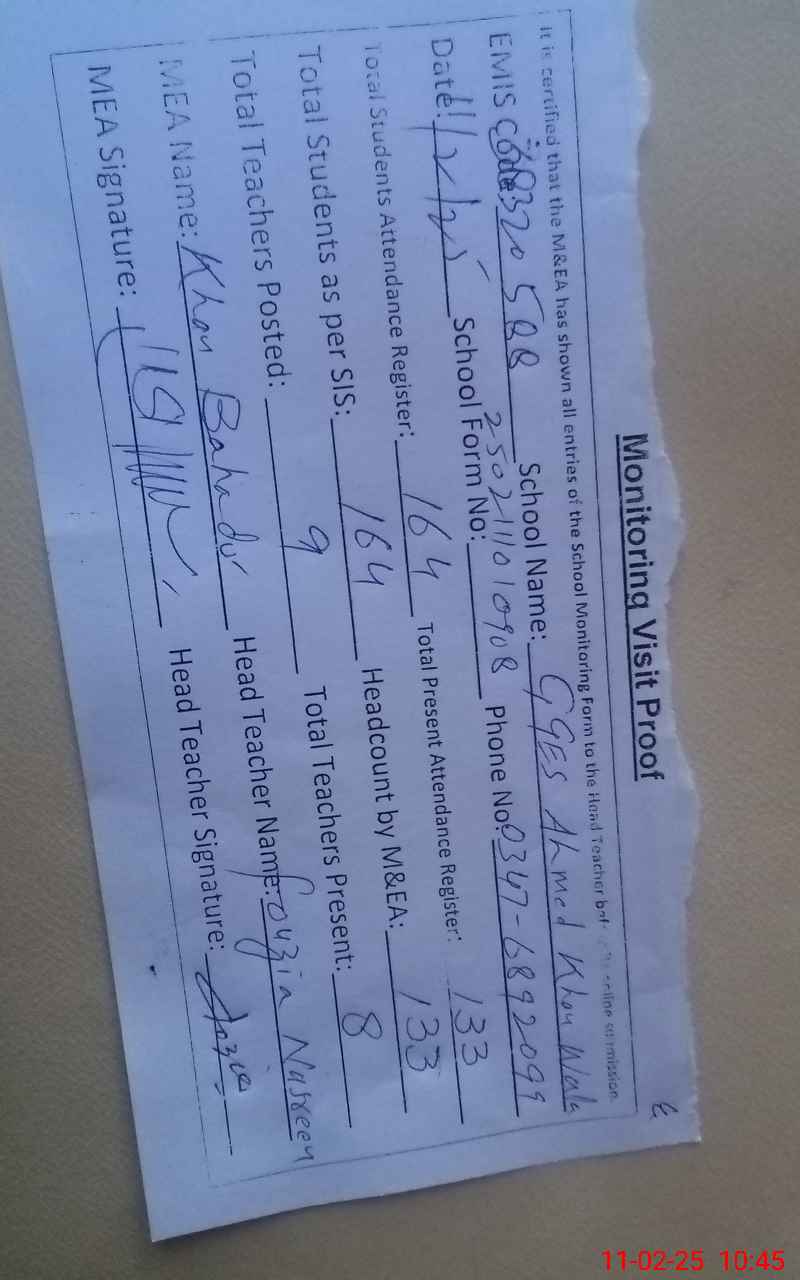 Monitoring Visit Proof
It is certified that the M&EA has shown all entries of the School Monitoring Form to the Head Teacher before online submission.
EMIS Code: School Name: GGES Ahmed Khan Wala
Date: 11/2/25 School Form No: 250211010908 Phone No: 0347-6892099
Total Students Attendance Register: 164 Total Present Attendance Register: 133
Total Students as per SIS: 164 Headcount by M&EA: 133
Total Teachers Posted: 9 Total Teachers Present: 8
MEA Name: Khan Bahadur Head Teacher Name: Fouzia Nasreen
MEA Signature: Head Teacher Signature:
11-02-25 10:45